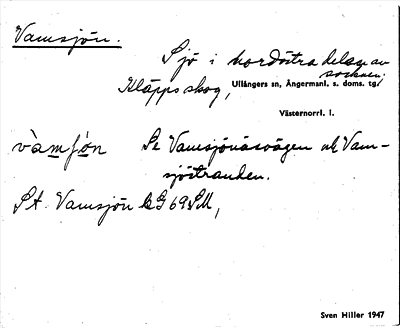 Vamsjön.
Sjö i nordöstra delen av
socknen.
Kläppsskog, Ullångers sn, Ångermanl. s. doms. tg,
Västernorrl. l.
vàmʃón Se Vamsjöåsvägen och Vam-
sjöstranden.
St. Vamsjön GS 69 SM,
Sven Hiller 1947